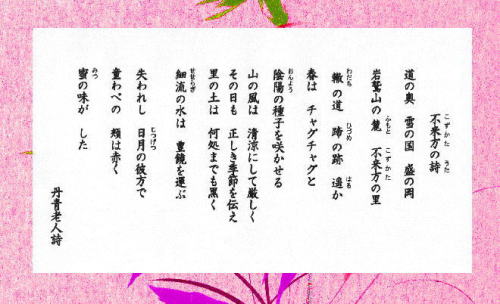 不来方の詩
道の奥　雪の国　盛の岡
岩鷲山の麓　不来方の里
轍の道　蹄の跡　遥か
春は　チャグチャグと
陰陽の種子を咲かせる
山の風は　清涼にして厳しく
その日も　正しき季節を伝え
里の土は　何処までも黒く
細流の水は　重鏡を運ぶ
失われし　日月の彼方で
童わべの　頬は赤く
蜜の味が　した
丹青老人詩